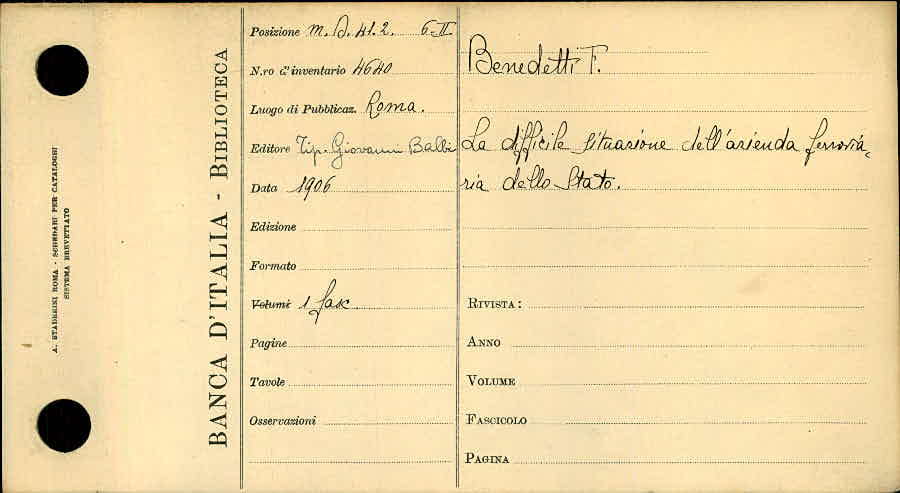 A. STADERINI ROMA - SCHEDARI PER CATALOGHI
SISTEMA BREVETTATO
BANCA D'ITALIA - BIBLIOTECA
Posizione M. D. 41.2. 6-II
N.ro d'inventario 4640
Luogo di Pubblicaz. Roma.
Editore Tip. Giovanni Balbi
Data 1906
Edizione
Formato
Volumi 1 fasc.
Pagine
Tavole
Osservazioni
Benedetti F.
La difficile situazione dell'azienda ferrovia-
ria dello Stato.
RIVISTA:
ANNO
VOLUME
FASCICOLO
PAGINA